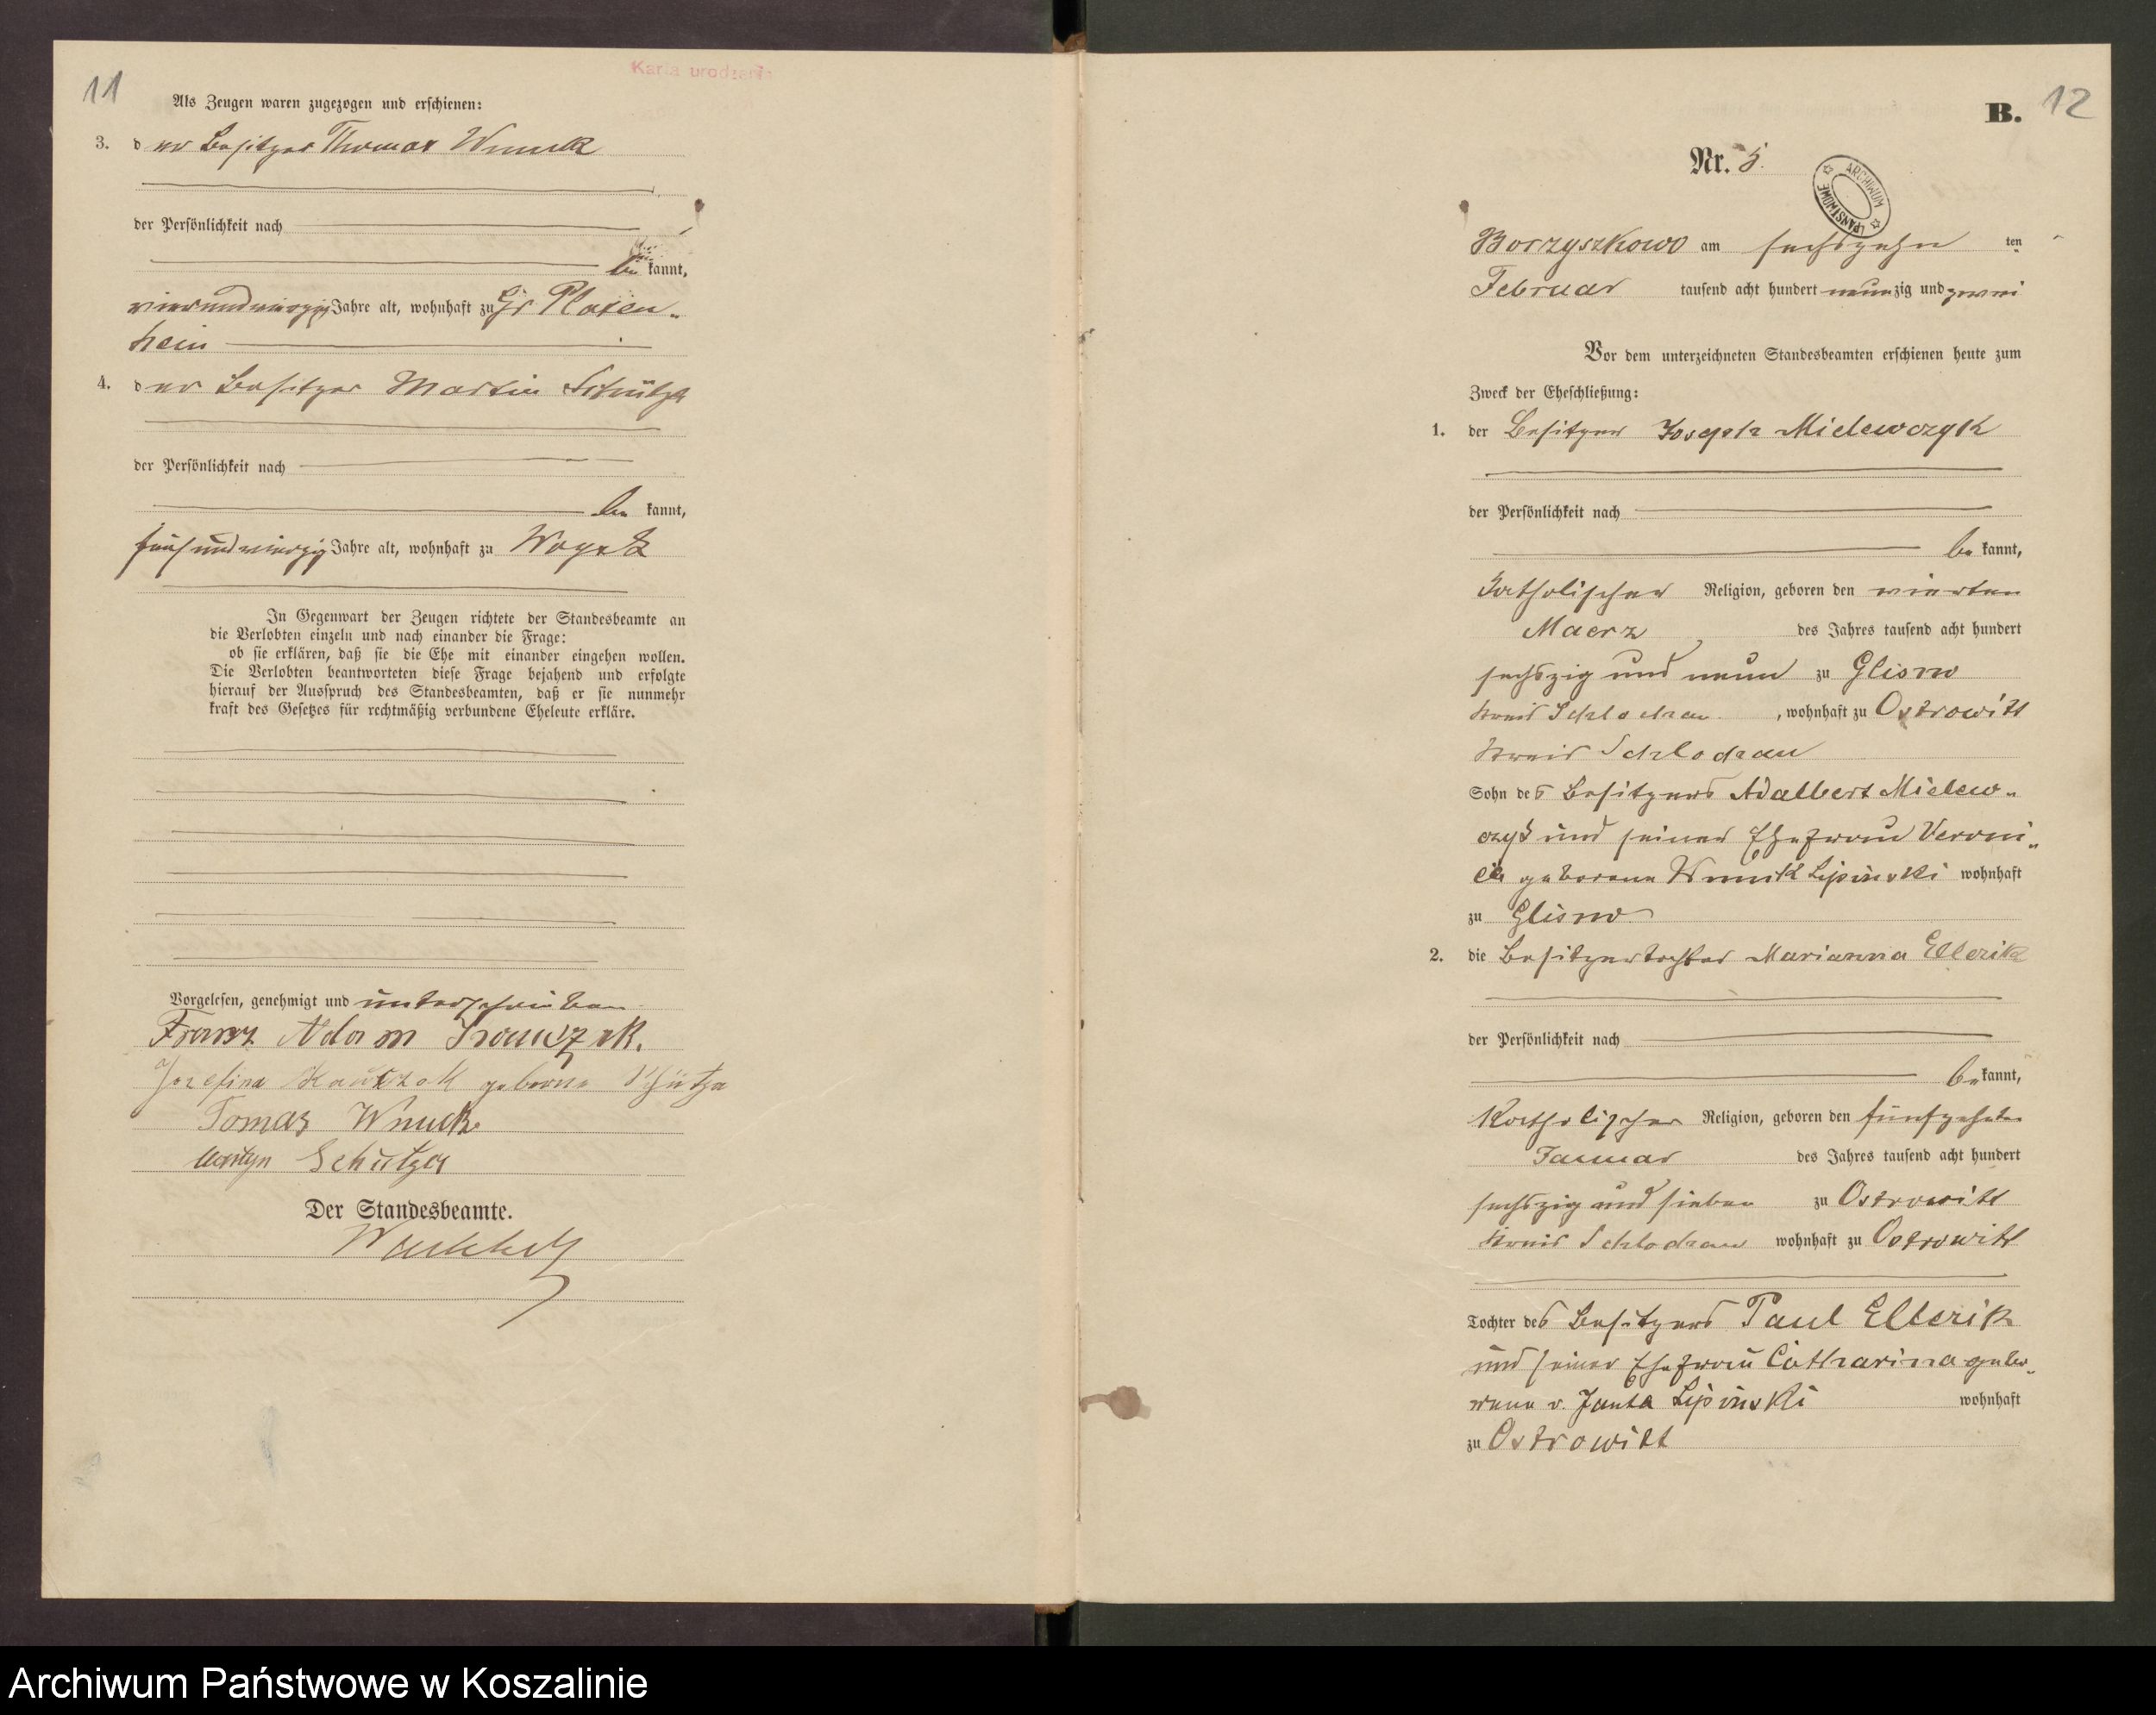 11
Karta urodzenia
Als Zeugen waren zugezogen und erschienen:
3. der Besitzer Thomas Wnuck
der Persönlichkeit nach
be kannt,
vierundvierzig Jahre alt, wohnhaft zu Gr Platen-
hein
4. der Besitzer Martin Schütza
der Persönlichkeit nach
be kannt,
fünfundvierzig Jahre alt, wohnhaft zu
In Gegenwart der Zeugen richtete der Standesbeamte an
die Verlobten einzeln und nach einander die Frage:
ob sie erklären, daß sie die Ehe mit einander eingehen wollen.
Die Verlobten beantworteten diese Frage bejahend und erfolgte
hierauf der Ausspruch des Standesbeamten, daß er sie nunmehr
kraft des Gesetzes für rechtmäßig verbundene Eheleute erkläre.
Vorgelesen, genehmigt und unterschrieben
Franz Adam
Josefina geborne Schütza
Tomas Wnuck
Schütza
Der Standesbeamte.
B. 12
Nr. 5.
ARCHIWUM PAŃSTWOWE
Borzyszkowo am sechszehn ten
Februar tausend acht hundert neunzig und zwei
Vor dem unterzeichneten Standesbeamten erschienen heute zum
Zweck der Eheschließung:
1. der Besitzer Joseph Mielewczyk
der Persönlichkeit nach
be kannt,
katholischer Religion, geboren den vierten
Maerz des Jahres tausend acht hundert
sechszig und neun zu Glisno
Kreis Schlochau, wohnhaft zu Ostrowitt
Kreis Schlochau
Sohn des Besitzers Adalbert Mielew-
czyk und seiner Ehefrau Veroni-
ca geborene Wnuk Lipinski wohnhaft
zu Glisno
2. die Besitzertochter Marianna Ellerik
der Persönlichkeit nach
be kannt,
katholischer Religion, geboren den fünfzehnten
Januar des Jahres tausend acht hundert
sechszig und sieben zu Ostrowitt
Kreis Schlochau wohnhaft zu Ostrowitt
Tochter des Besitzers Paul Ellerik
und seiner Ehefrau Catharina gebo-
rene v. Janta Lipinski wohnhaft
zu Ostrowitt
Archiwum Państwowe w Koszalinie